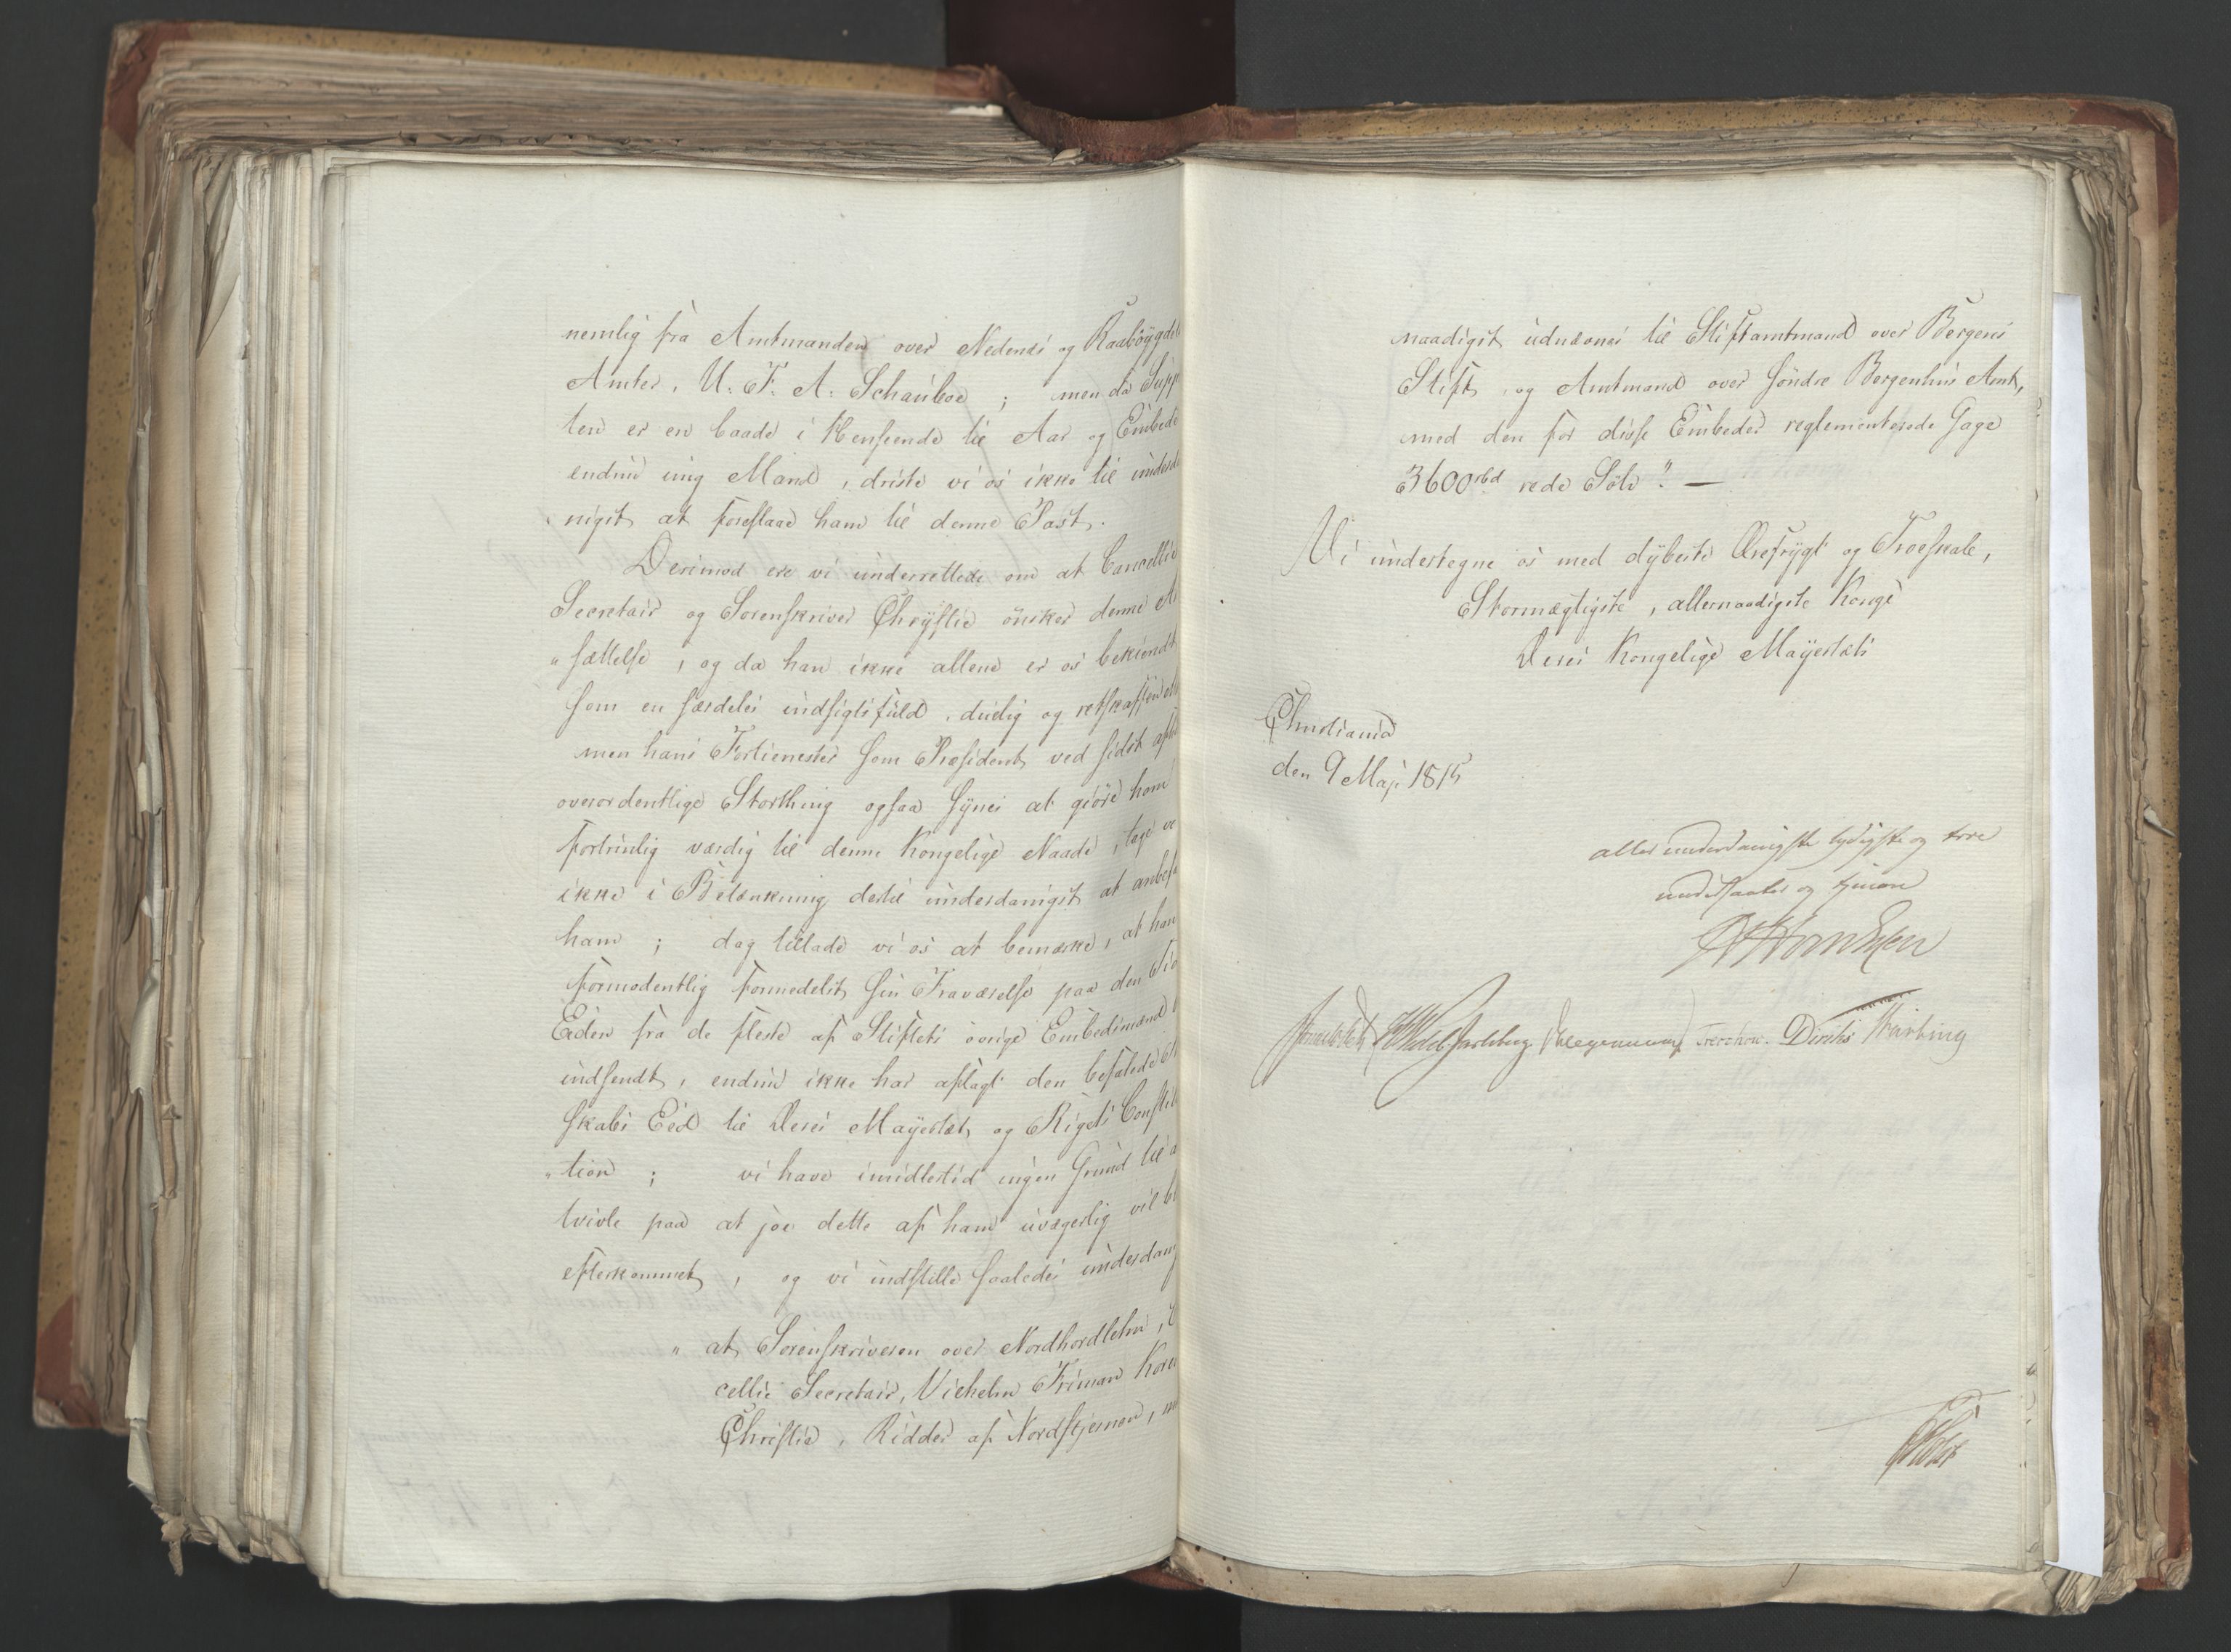 nemlig fra Amtmanden over Nedenæs og Raabøygdel
Amter, U. F. A. Schouboe; men da Supp
ten er en baade i Henseende til Aar og Embede
endnu ung Mand, driste vi os ikke til underd
nigst at foreslaae ham til denne Post.
Derimod ere vi underrettede om at Cancellie
Secretair og Sorenskriver Chrystie ønsker denne A
„sættelse, og da han ikke allene er os bekiendt
som en særdeles indsigtsfuld, duelig og retskaffen
men hans Fortienester som Præsident ved sidst
overordentlige Storthing ogsaa synes at giøre ham
fortrinlig værdig til denne Kongelige Naade, tage
ikke i Betænkning dertil underdanigst at anbef
ham; dog tillade vi os at bemærke, at han
formodentlig formedelst sin Fraværelse paa den
Eeden fra de fleste af Stiftets øvrige Embedsmænd
indsendt, endnu ikke har aflagt den befalede
skabs Eed til Deres Mayestæt og Rigets Constit
„tion; vi have imidlertid ingen Grund til a
tvivle paa at joe dette af ham uvægerlig vil bl
efterkommet, og vi indstille saaledes underdan
„at Sorenskriveren over Nordhordlehn,
cellie Secretair, Vilhelm Friman Koren
Christie, Ridder af Nordstjernen,
naadigst udnævnes til Stiftamtmand over Bergens
Stift, og Amtmand over søndre Bergenhus Amt,
med den for disse Embeder reglementerede Gage
3600 rbd rede Sølv". —
Vi undertegne os med dybeste Ærefrygt og Troeskab,
Stormægtigste, allernaadigste Konge
Deres Kongelige Mayestæts
Christiania
den 9 Maji 1815
allerunderdanigste lydigste og troe
undersaatter og tjenere
Sommerhielm Wedel Jarlsberg Hegermann Treschow. Diriks Motzfeldt
Holst